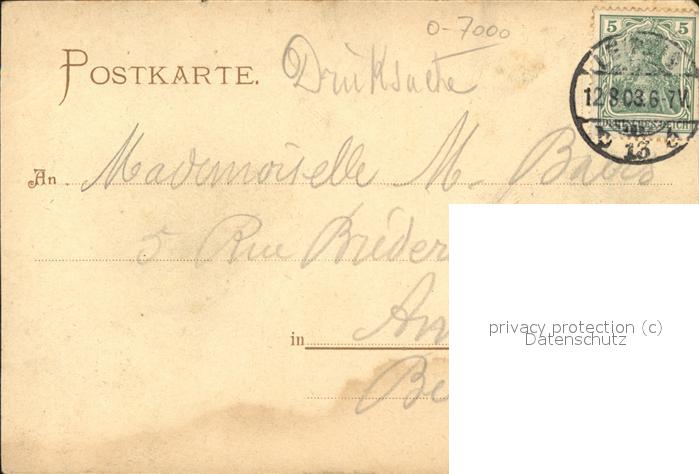 0-7000
POSTKARTE. Drucksache
5 5
LEIPZIG
12.8.03.6-7V.
DEUTSCHES REICH
13
An Mademoiselle M. Babis
5 Rue
in An
Be
privacy protection (c)
Datenschutz